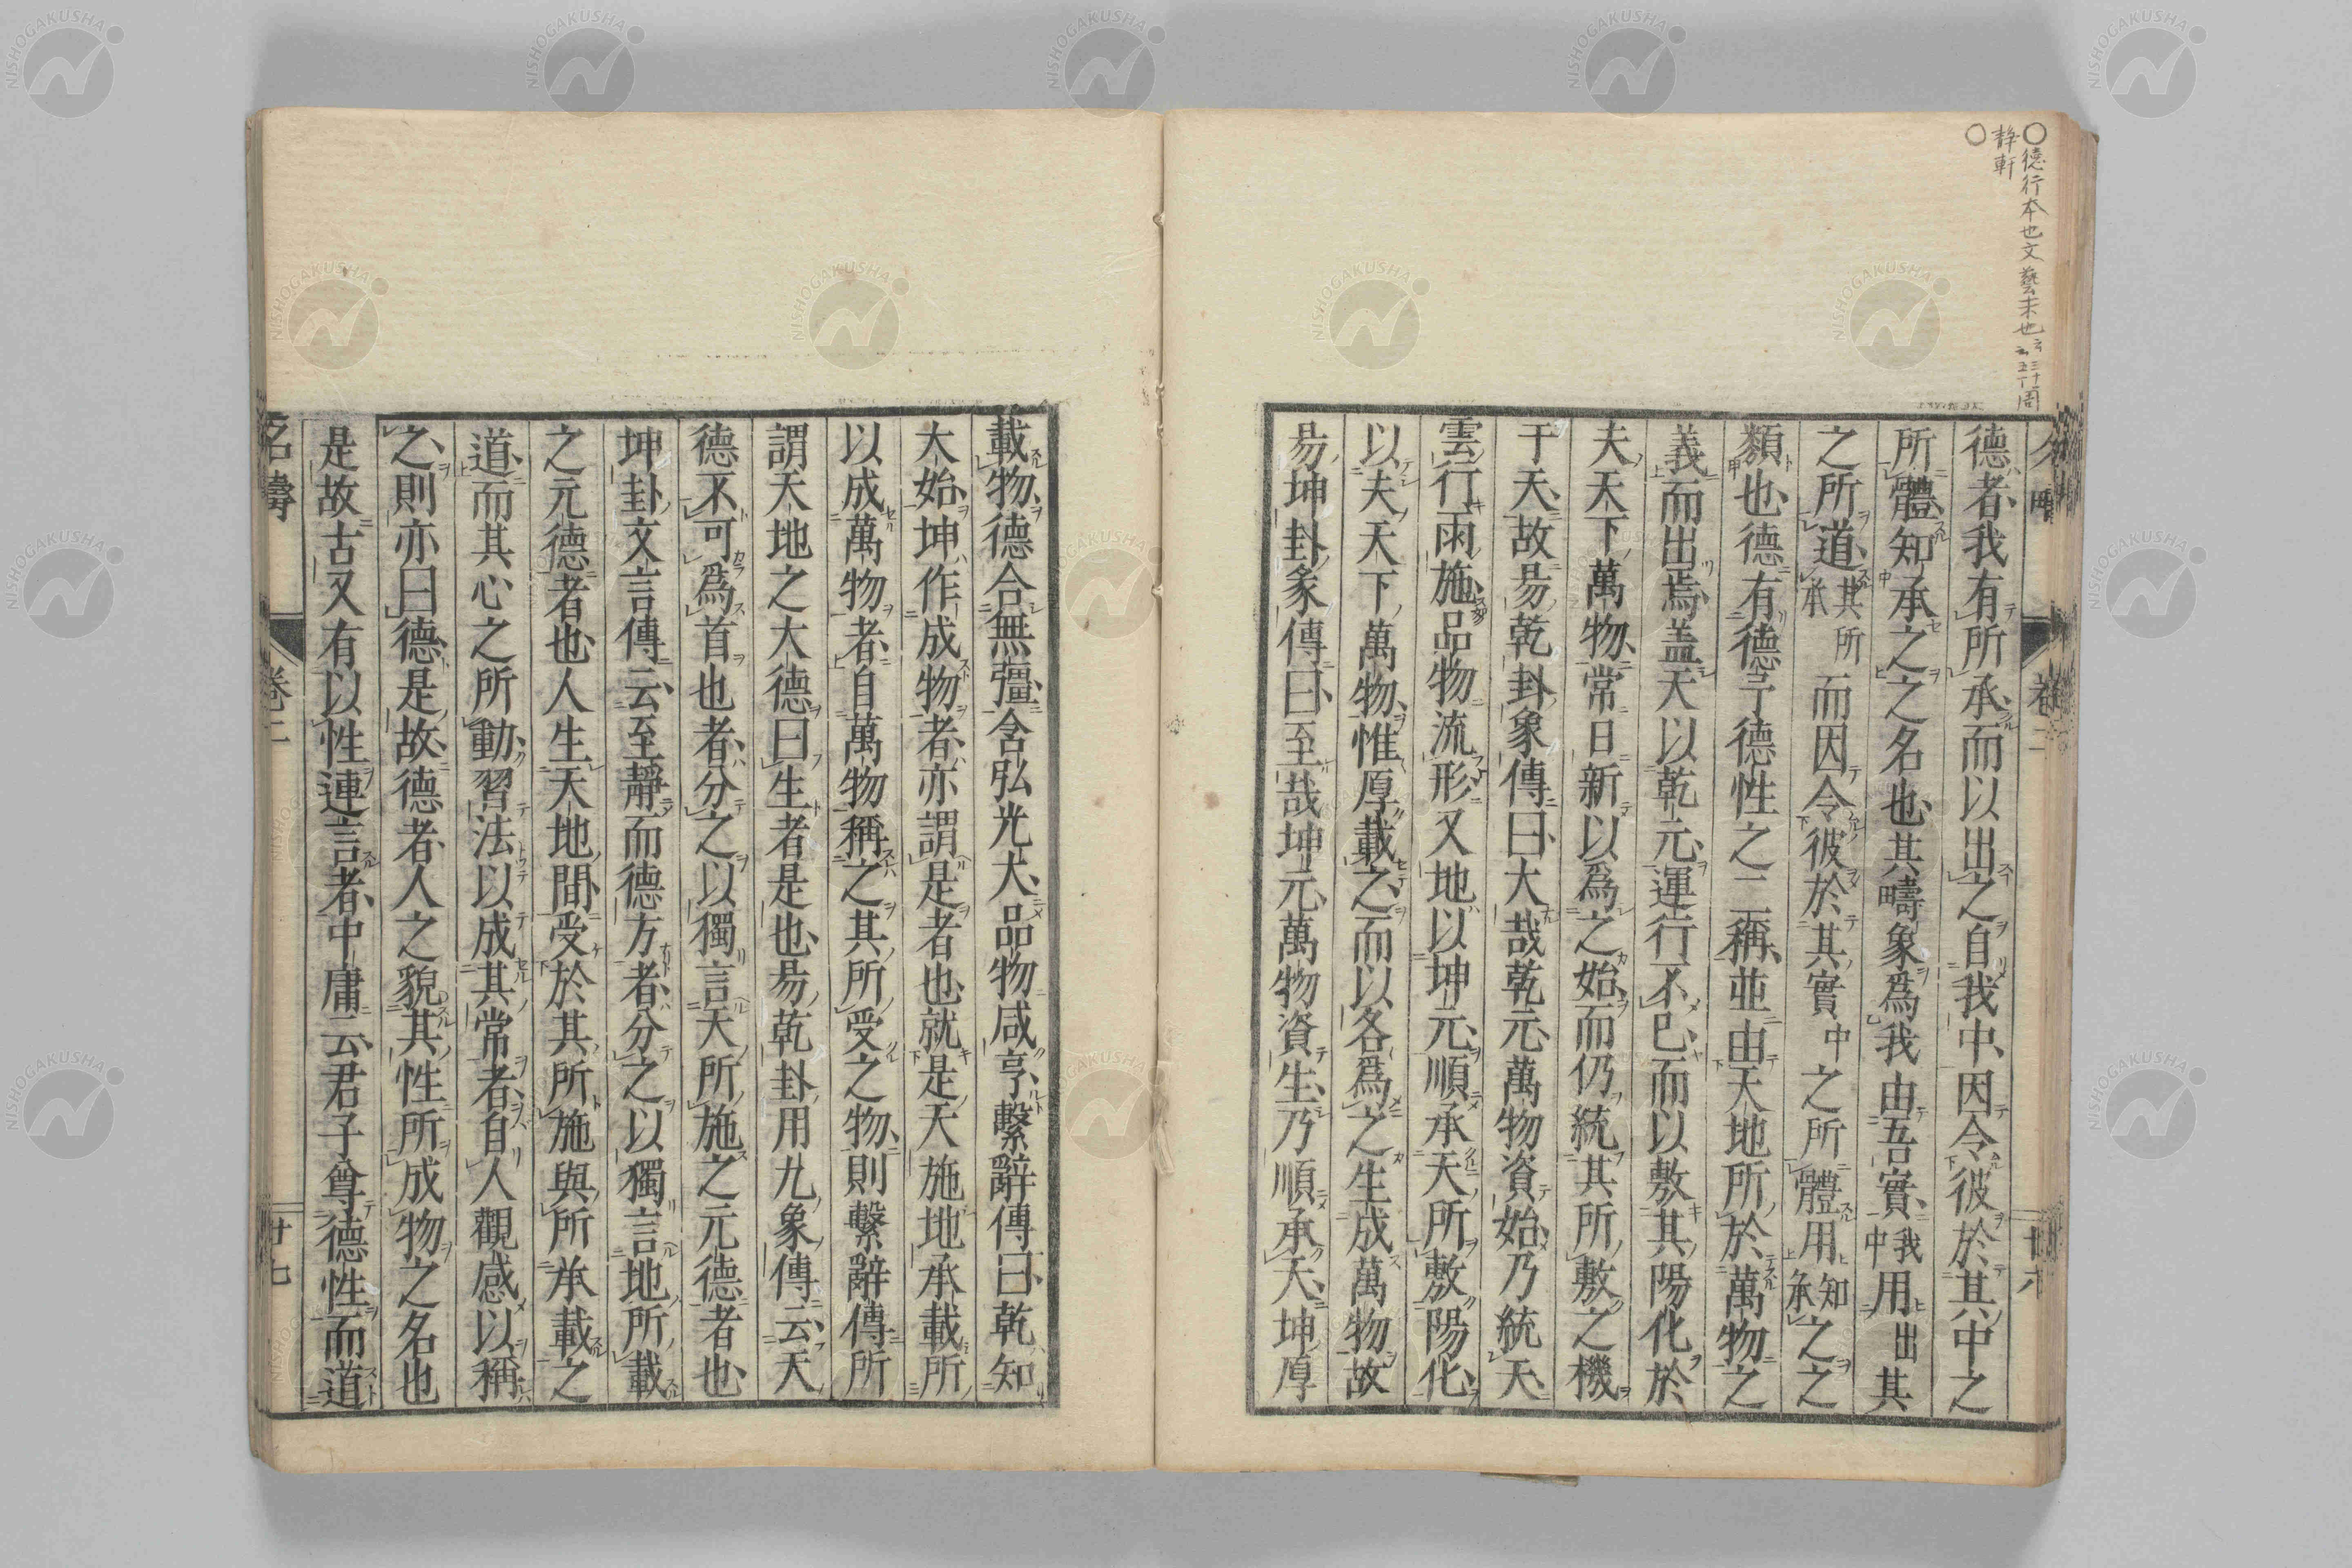 ○德行本也文藝末也云云
靜軒
○
德者我有所承而以出之自我中因令彼於其中之
所體知承之之名也其疇象爲我由吾實我中用出其
之所道其所承而因令彼於其實中之所體用知承之之
類也德有德亍德性之二稱並由天地所於萬物之
義而出焉盖天以乾元運行不已而以敷其陽化於
夫天下萬物常日新以爲之始而仍統其所敷之機
于天故易乾卦彖傳曰大哉乾元萬物資始乃統天
雲行雨施品物流形又地以坤元順承天所敷陽化
以夫天下萬物惟厚載之而以各爲之生成萬物故
易坤卦彖傳曰至哉坤元萬物資生乃順承天坤厚
載物德合無彊含弘光大品物咸亨繫辭傳曰乾知
大始坤作成物者亦謂是者也就是天施地承載所
以成萬物者自萬物稱之其所受之物則繫辭傳所
謂天地之大德曰生者是也易乾卦用九象傳云天
德不可爲首也者分之以獨言天所施之元德者也
坤卦文言傳云至靜而德方者分之以獨言地所載
之元德者也人生天地間受於其所施與所承載之
道而其心之所動習法以成其常者自人觀感以稱
之則亦曰德是故德者人之貌其性所成物之名也
是故古又有以性連言者中庸云君子尊德性而道
名疇
卷二
廿七